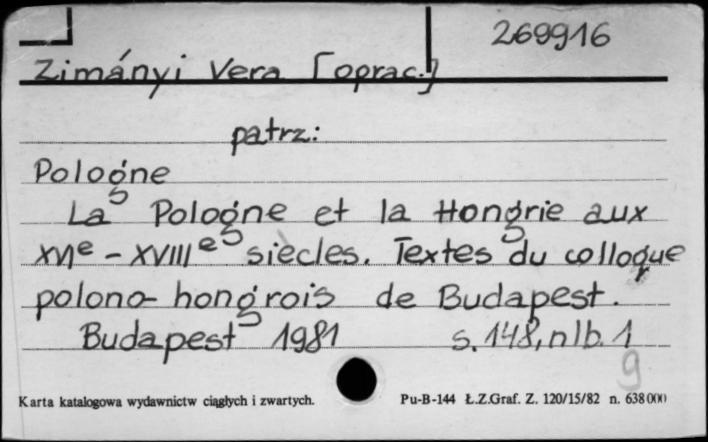 269916
Zimányi Vera [oprac.]
patrz:
Pologne
La Pologne et la Hongrie aux
XVIe - XVIIIe siècles. Textes du colloque
polono-hongrois de Budapest.
Budapest 1981 s. 148, nlb. 1
9
Karta katalogowa wydawnictw ciągłych i zwartych. Pu-B-144 Ł.Z.Graf. Z. 120/15/82 n. 638000